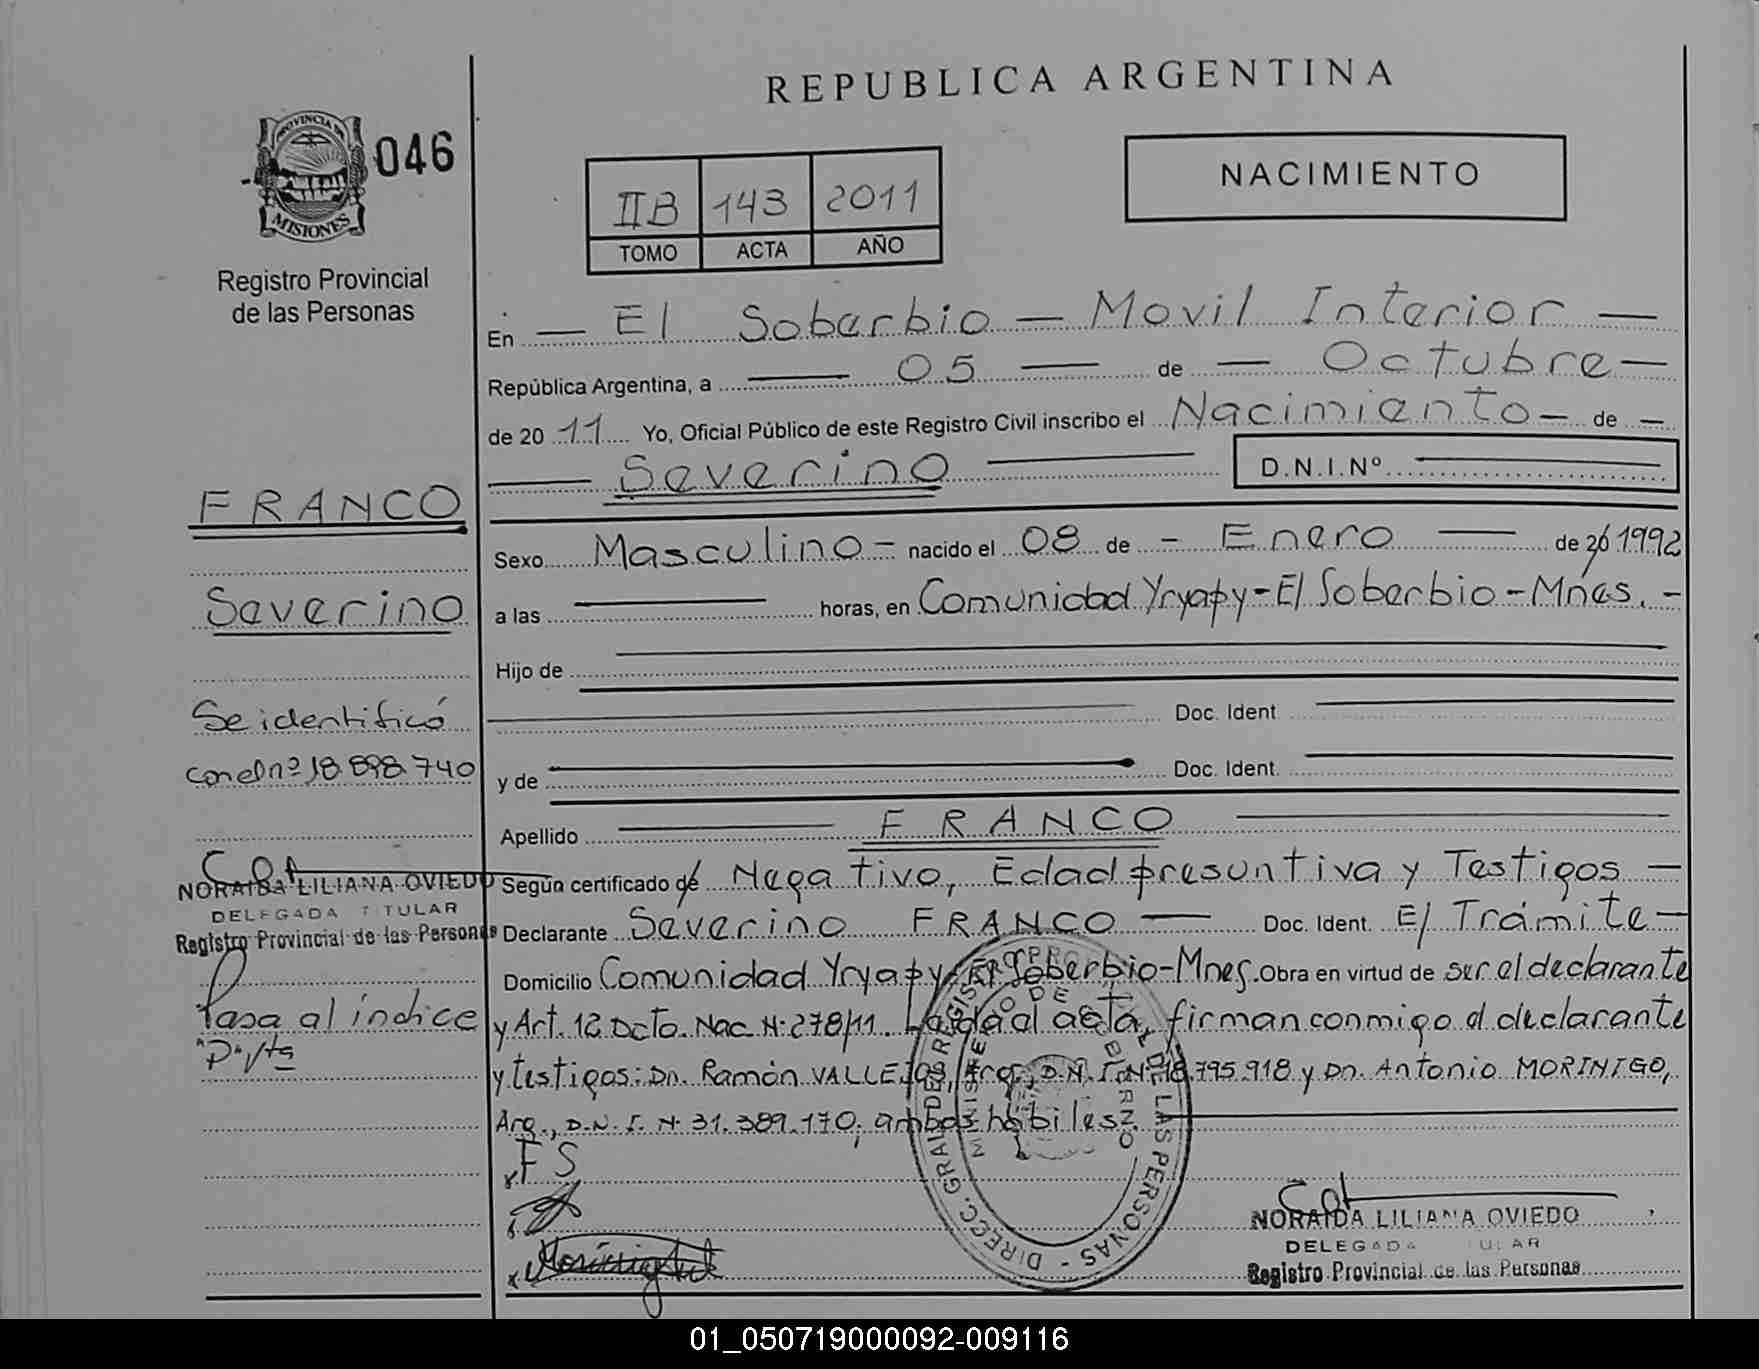 REPUBLICA ARGENTINA
PROVINCIA DE
MISIONES
046
Registro Provincial
de las Personas
IIB 143 2011
TOMO ACTA AÑO
NACIMIENTO
En — El Soberbio — Movil Interior —
República Argentina, a — 05 — de — Octubre —
de 20 11 Yo, Oficial Público de este Registro Civil inscribo el Nacimiento — de —
— Severino — D.N.I.Nº —
FRANCO
Severino
Se identificó
con el nº 18.898.740
NORAIDA LILIANA OVIEDO
DELEGADA TITULAR
Registro Provincial de las Personas
Pasa al índice
"P" Vta
Sexo Masculino - nacido el 08 de - Enero — de 20 1992
a las — horas, en Comunidad Yryapy - El Soberbio - Mnes. -
Hijo de —
— Doc. Ident —
y de — Doc. Ident. —
Apellido — FRANCO —
Según certificado de Negativo, Edad presuntiva y Testigos —
Declarante Severino FRANCO — Doc. Ident. E/ Trámite —
Domicilio Comunidad Yryapy - El Soberbio - Mnes. Obra en virtud de ser el declarante
y Art. 12 Dcto. Nac. N: 278/11. Leída el acta, firman conmigo el declarante
y testigos: Dn. Ramón VALLEJOS, Arg., D.N.I. N: 18.795.918 y Dn. Antonio MORINIGO,
Arg., D.N.I. N: 31.389.170, ambos hábiles.
FS
DIRECC. GRAL. DEL REGISTRO PROVINCIAL DE LAS PERSONAS
MINISTERIO DE GOBIERNO
NORAIDA LILIANA OVIEDO
DELEGADA TITULAR
Registro Provincial de las Personas
01_050719000092-009116